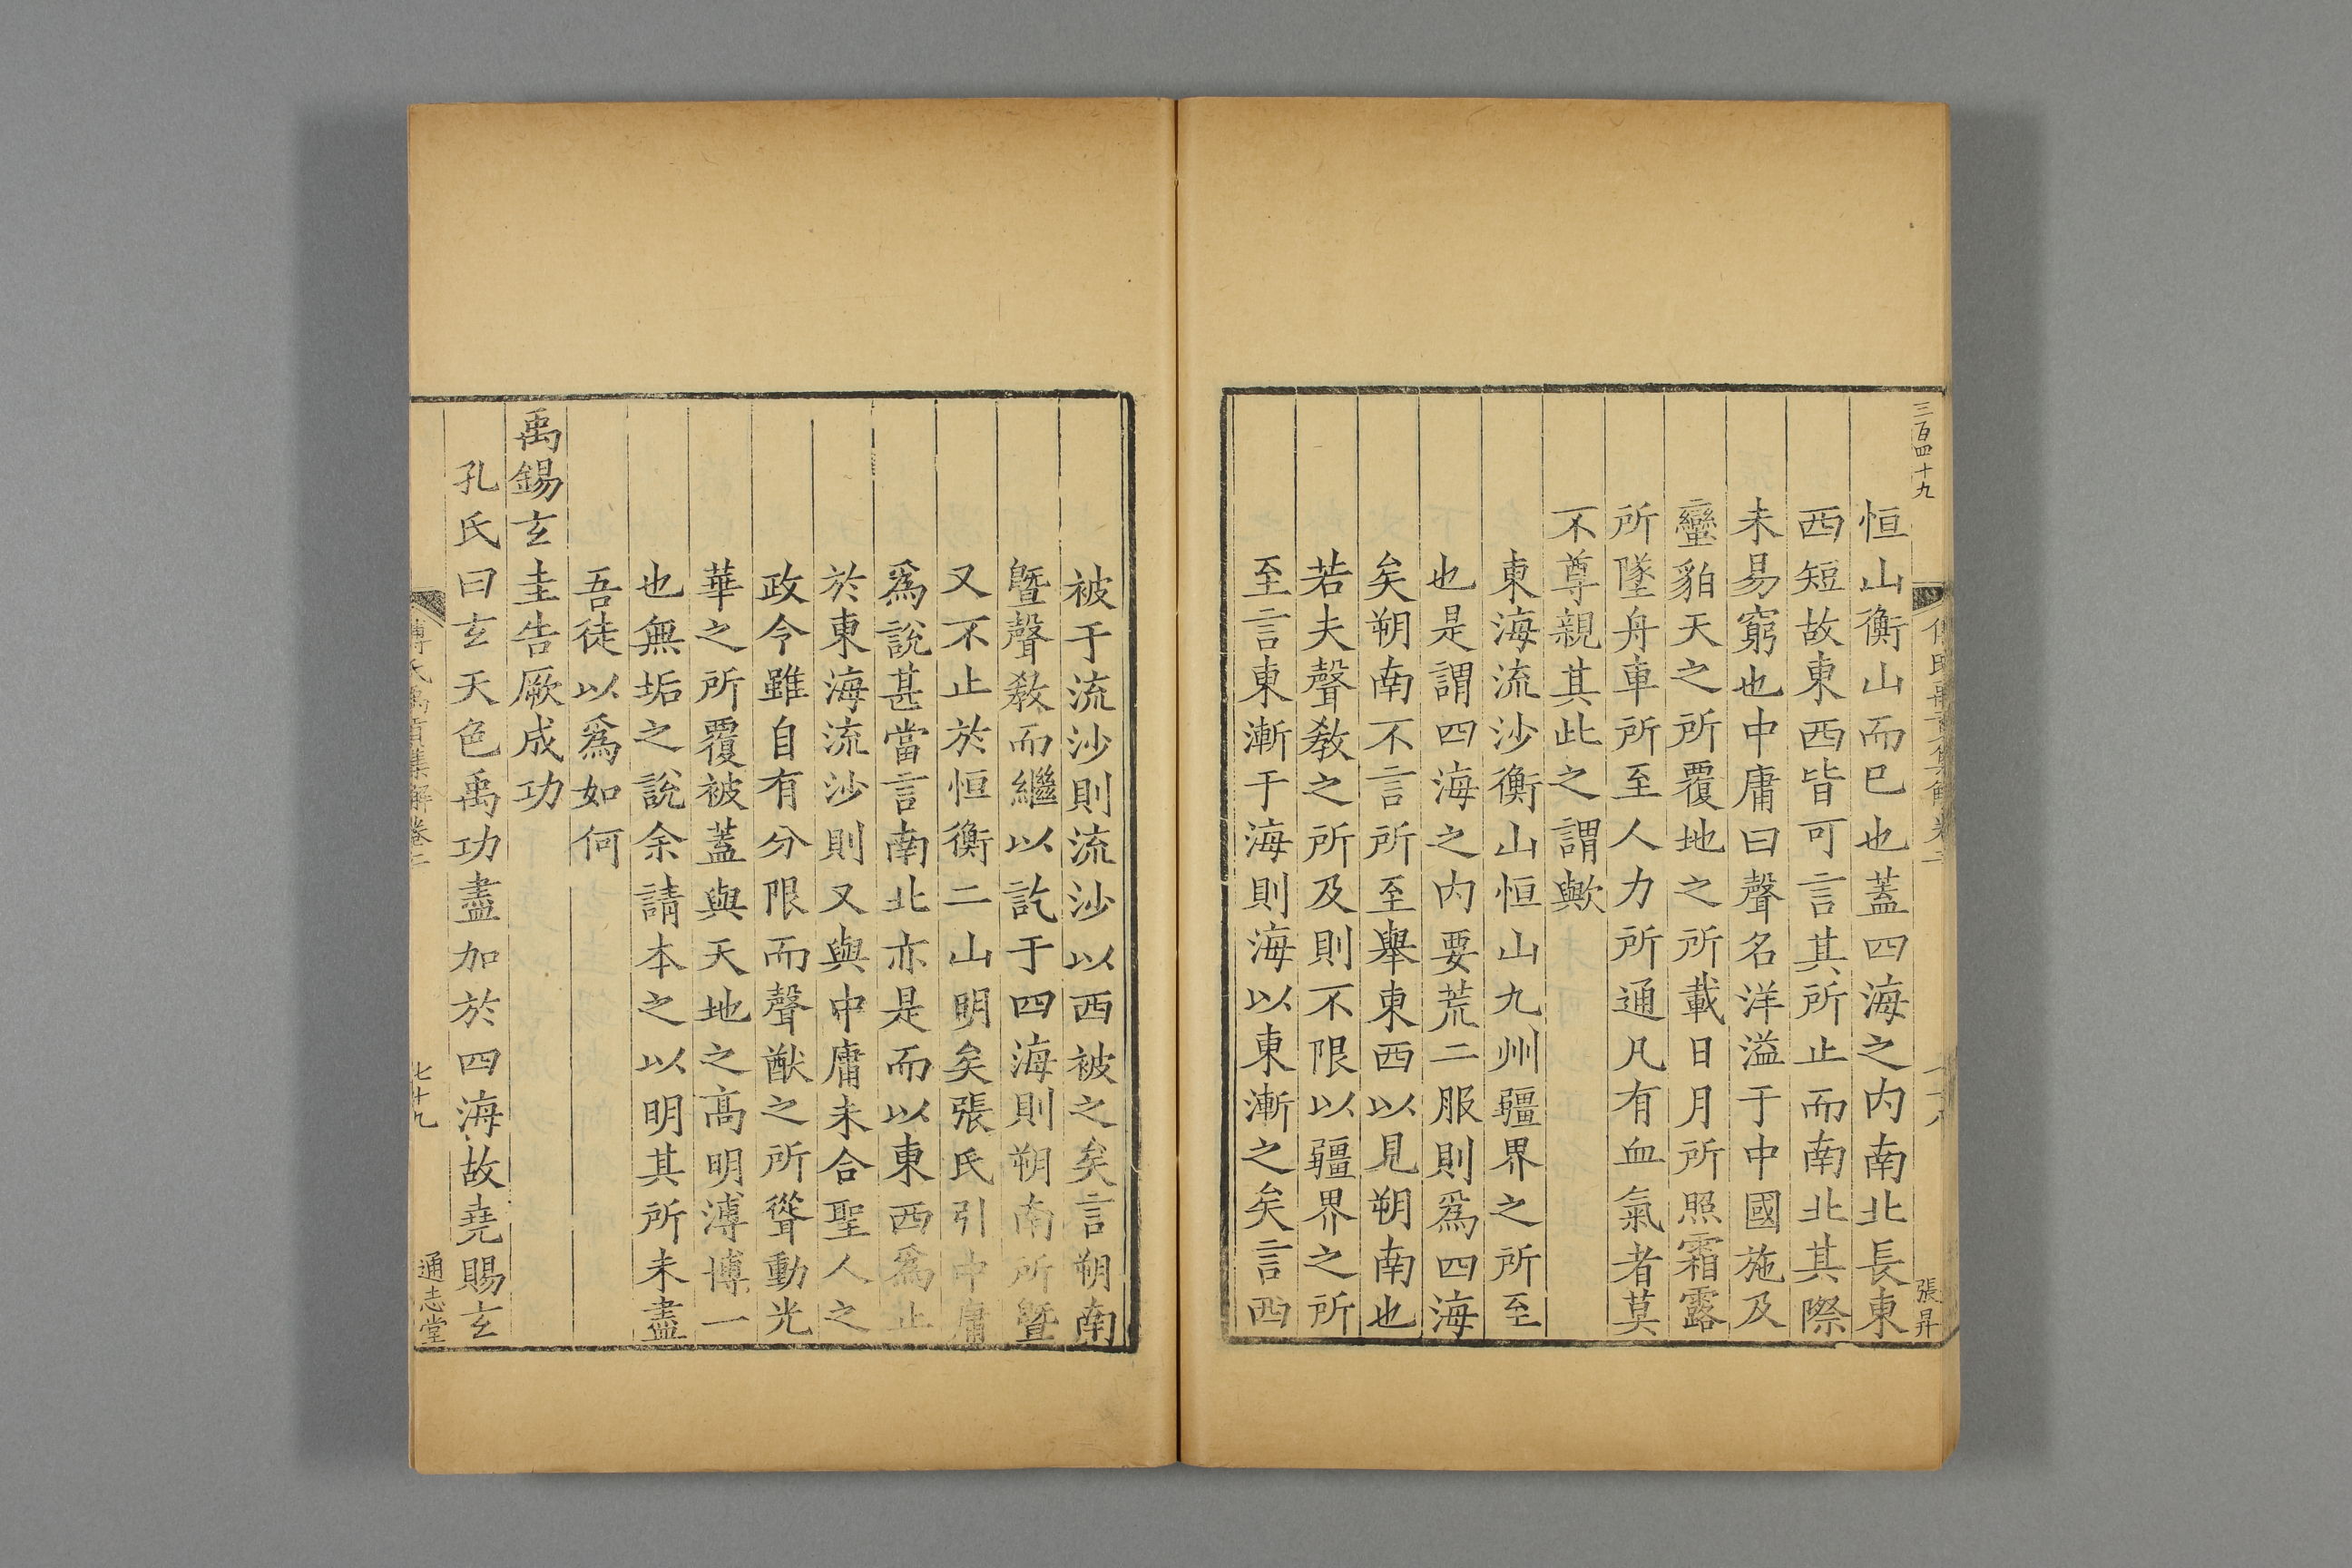 三百四十九
張昇
恒山衡山而巳也蓋四海之内南北長東
西短故東西皆可言其所止而南北其際
未易窮也中庸曰聲名洋溢于中國施及
蠻貊天之所覆地之所載日月所照霜露
所墜舟車所至人力所通凡有血氣者莫
不尊親其此之謂歟
東海流沙衡山恒山九州疆界之所至
也是謂四海之内要荒二服則爲四海
矣朔南不言所至舉東西以見朔南也
若夫聲敎之所及則不限以疆界之所
至言東漸于海則海以東漸之矣言西
被于流沙則流沙以西被之矣言朔南
曁聲敎而繼以訖于四海則朔南所曁
又不止於恒衡二山明矣張氏引中庸
爲說甚當言南北亦是而以東西爲止
於東海流沙則又與中庸未合聖人之
政今雖自有分限而聲猷之所聳動光
華之所覆被蓋與天地之高明溥博一
也無垢之說余請本之以明其所未盡
吾徒以爲如何
禹錫玄圭告厥成功
孔氏曰玄天色禹功盡加於四海故堯賜玄
傅氏禹貢集解卷二
七十九
通志堂